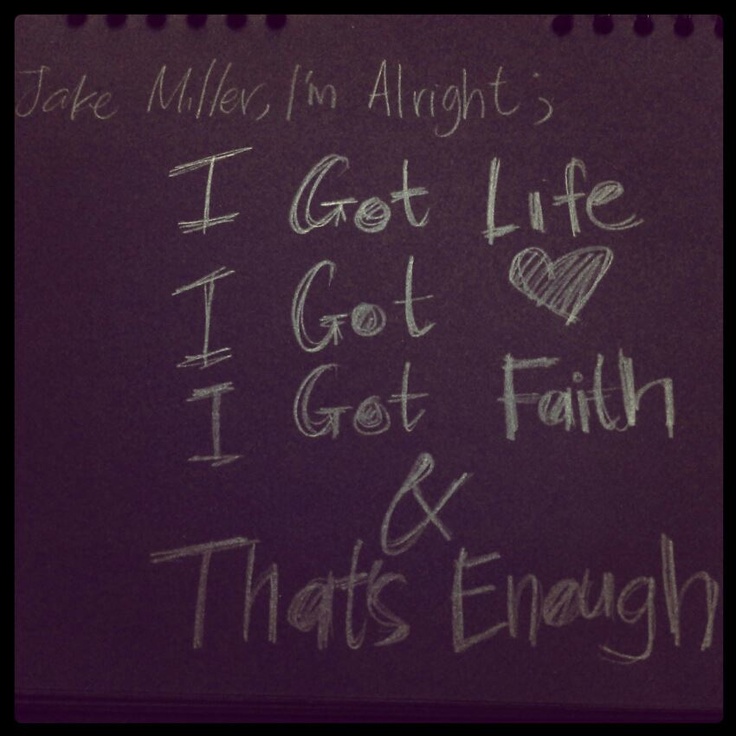 Jake Miller, I'm Alright;
I Got Life
I Got ♥
I Got Faith
&
That's Enough